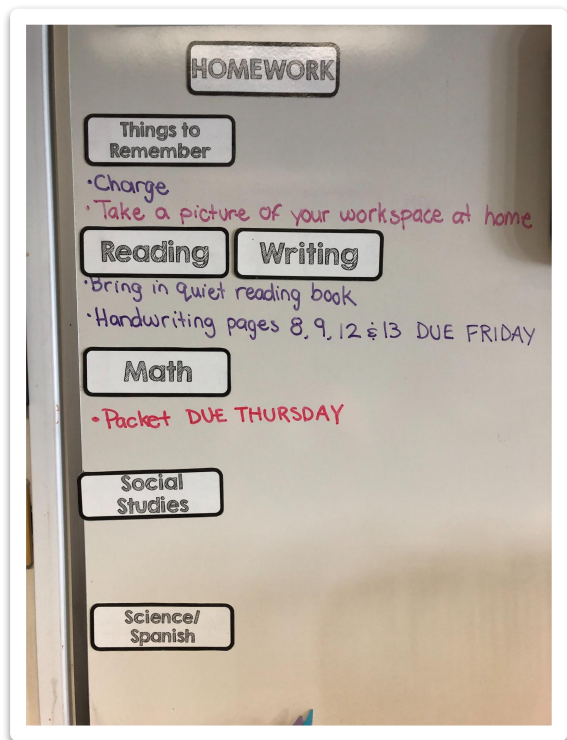 HOMEWORK
Things to
Remember
•Charge
•Take a picture of your workspace at home
Reading Writing
•Bring in quiet reading book
•Handwriting pages 8, 9, 12 & 13 DUE FRIDAY
Math
•Packet DUE THURSDAY
Social
Studies
Science/
Spanish